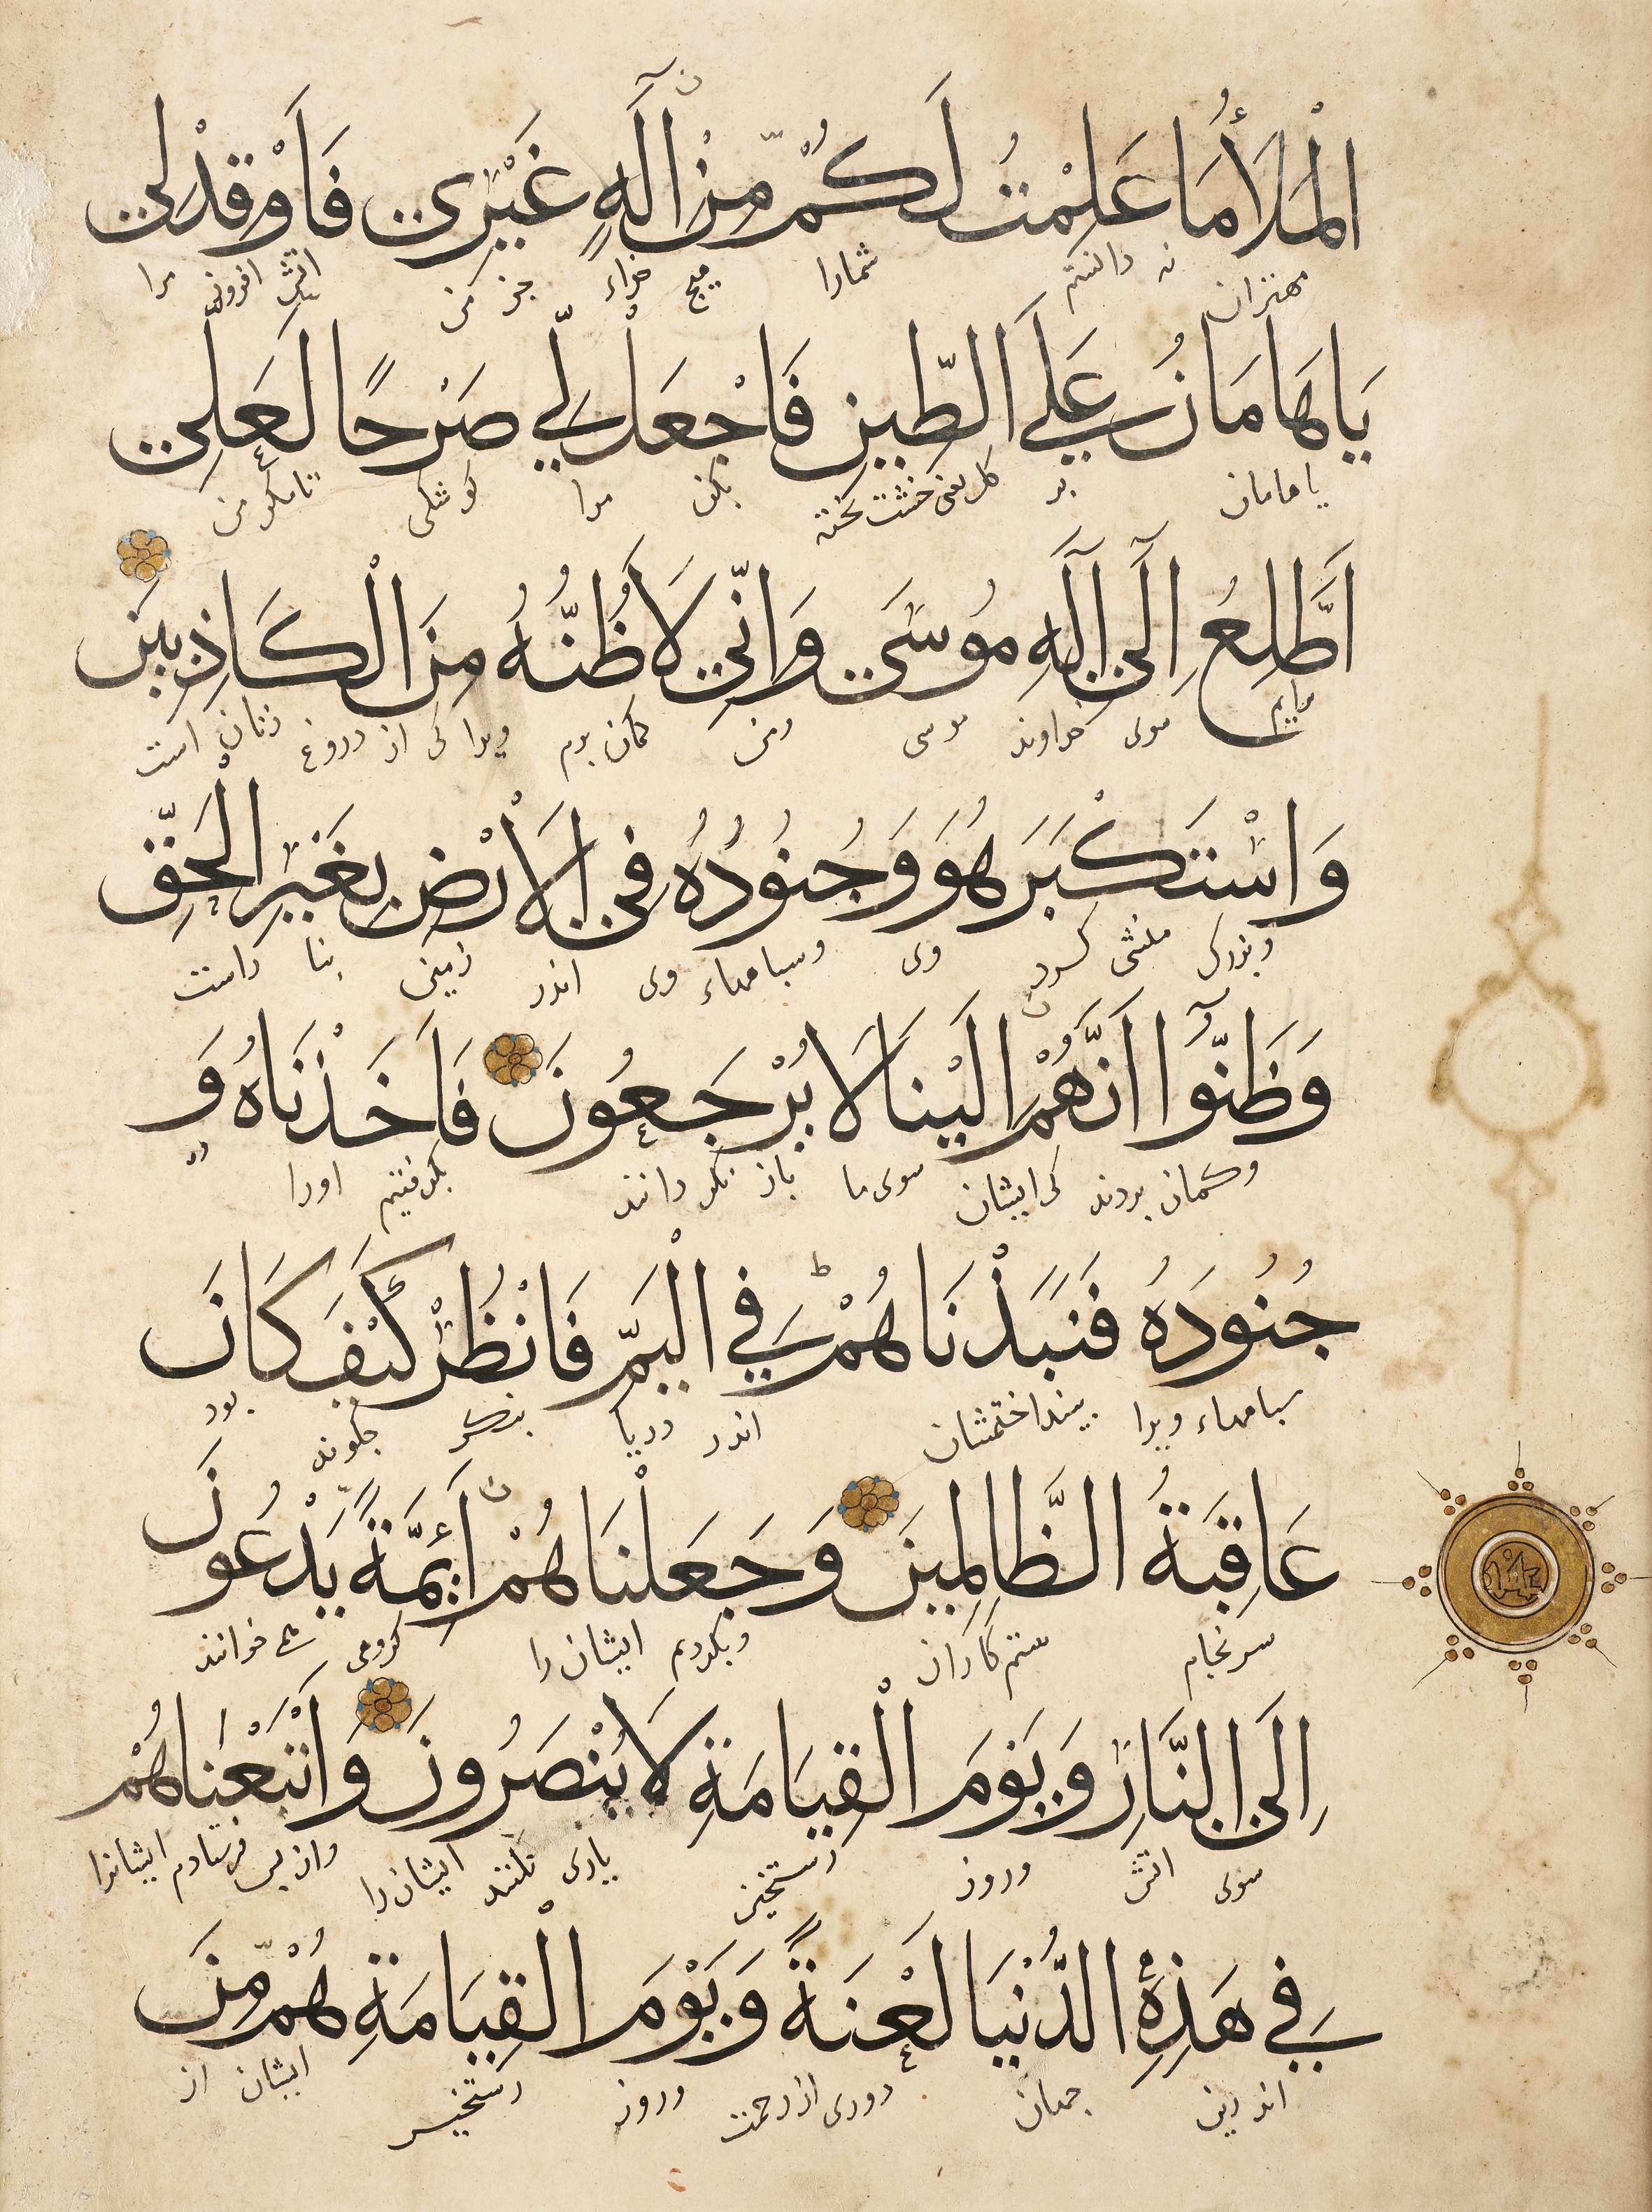 الْمَلَأُ مَا عَلِمْتُ لَكُمْ مِّنْ اِلٰهٍ غَيْرِى فَاَوْقِدْلِى
مهتران نه دانستم شمارا هیچ خداء جز من اتش افروز مرا
يَا هَامَانُ عَلَى الطِّينِ فَاجْعَلْ لِّى صَرْحًا لَّعَلِّى
یا هامان بر کل یعنی خشت پخته بکن مرا کوشکی تا مکر من
اَطَّلِعُ اِلٰٓى اِلٰهِ مُوسَى وَاِنِّى لَاَظُنُّهُ مِنَ الْكَاذِبِينَ
سوی خداوند موسی ومن کمان برم ویرا کی از دروغ زنان است
وَاسْتَكْبَرَ هُوَ وَجُنُودُهُ فِى الْاَرْضِ بِغَيْرِ الْحَقِّ
وبزرکی منشی کرد وی وسباهاء وی اندر زمین بنا راست
وَظَنُّوٓا اَنَّهُمْ اِلَيْنَا لَا يُرْجَعُونَ فَاَخَذْنَاهُ وَ
وکمان بردند کی ایشان سوی ما باز نکردانند بکرفتیم اورا
جُنُودَهُ فَنَبَذْنَاهُمْ فِى الْيَمِّ فَانْظُرْ كَيْفَ كَانَ
سباهاء ویرا بینداختمشان اندر دریا بنکر جکونه بود
عَاقِبَةُ الظَّالِمِينَ وَجَعَلْنَاهُمْ اَئِمَّةً يَّدْعُونَ
سرنجام ستم کاران وبکردم ایشان را کروهی می خوانند
اِلَى النَّارِ وَيَوْمَ الْقِيَامَةِ لَا يُنْصَرُونَ وَاَتْبَعْنَاهُمْ
سوی اتش وروز رستخیز یاری نکنند ایشان را واز بس فرستادم ایشانرا
فِى هَذِهِ الدُّنْيَا لَعْنَةً وَيَوْمَ الْقِيَامَةِ هُمْ مِّنَ
اندرین جهان دوری از رحمت وروز رستخیز ایشان از